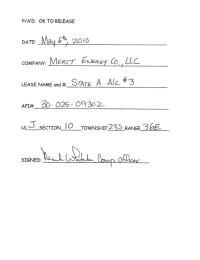 P/A'D. OK TO RELEASE
DATE May 6th, 2010
COMPANY: MERIT ENERGY CO., LLC
LEASE NAME and #: STATE A A/C #3
API# 30-025-09302
UL J SECTION 10 TOWNSHIP 23S RANGE 36E
SIGNED: Mark Whitaker Comp. Officer